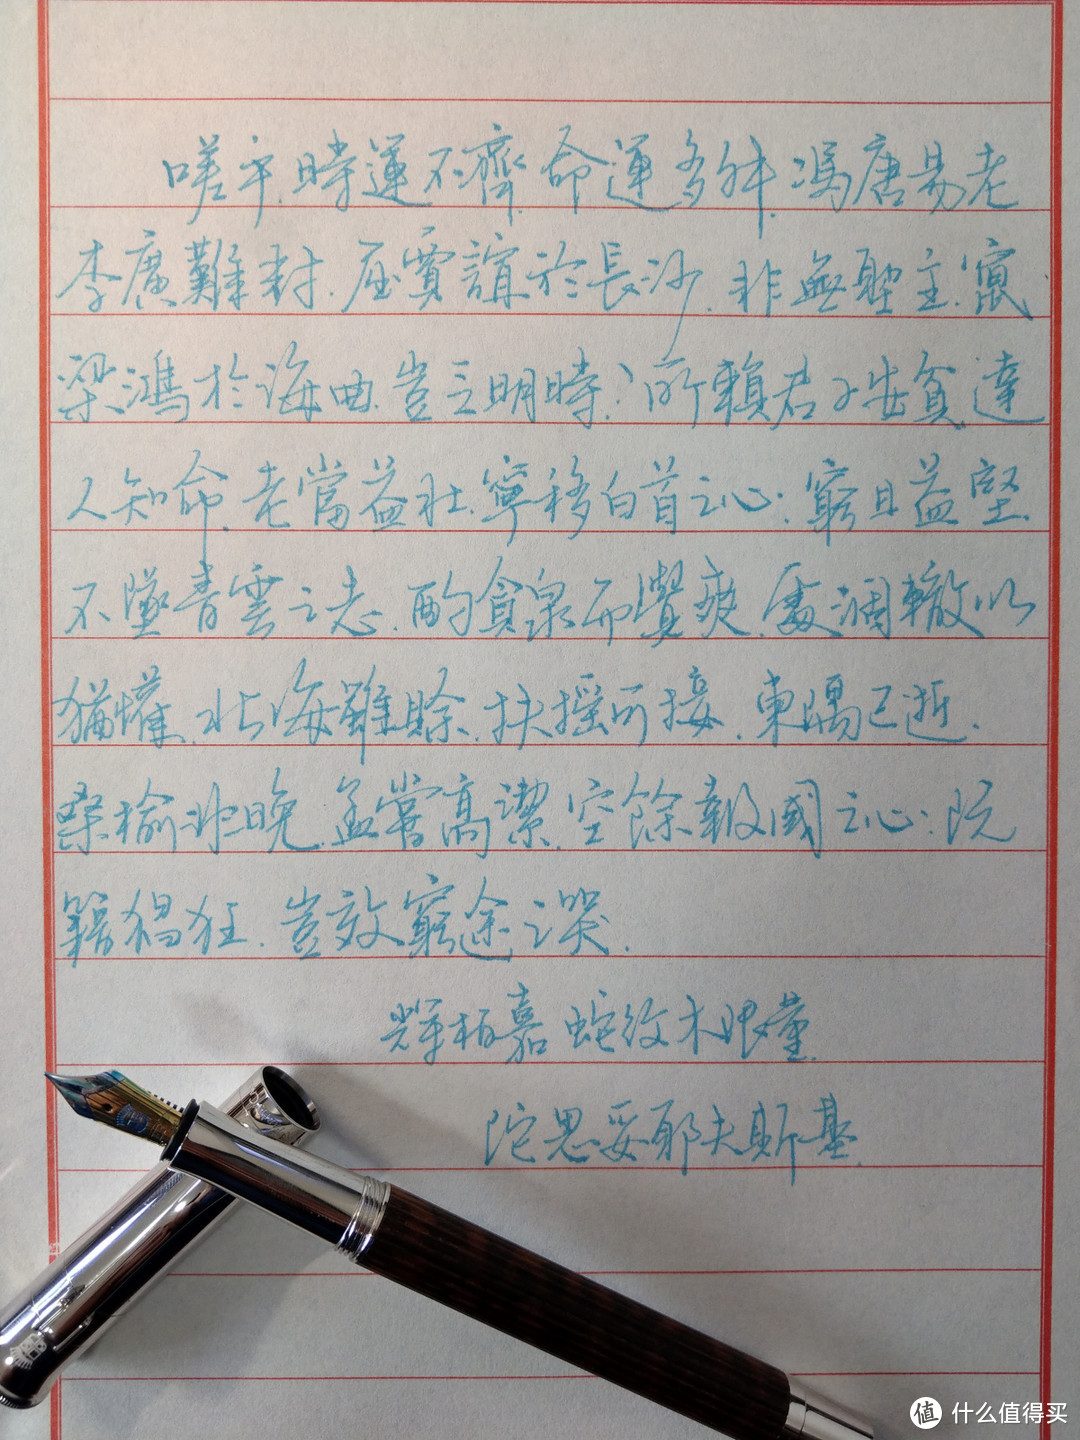 嗟乎.時運不齊.命運多舛.馮唐易老
李廣難封.屈賈誼於長沙.非無聖主.竄
梁鴻於海曲.豈乏明時?所賴君子安貧.達
人知命.老當益壯.寧移白首之心.窮且益堅.
不墜青雲之志.酌貪泉而覺爽.處涸轍以
猶懽.北海雖賒.扶搖可接.東隅已逝.
桑榆非晚.孟嘗高潔.空餘報國之心.阮
籍猖狂.豈效窮途之哭.
輝柏嘉 蛇紋木限量.
陀思妥耶夫斯基.
值 什么值得买